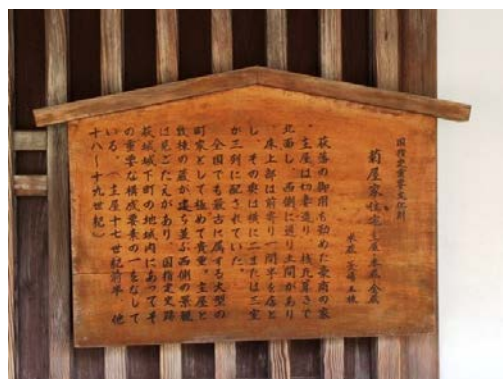 国指定重要文化財
菊屋家住宅 主屋・本蔵・金蔵
米蔵・釜場 五棟
萩藩の御用も勤めた豪商の家
。主屋は切妻造り・桟瓦葺きで
北面し、西側に通り土間があり
、床上部は前寄り一間半を店と
し、その奥は横に二または三室
が三列に配されていた。
全国でも最古に属する大型の
町家として極めて貴重。主屋と
数棟の蔵が建ち並ぶ西側の景観
は見ごたえがあり、国指定史跡
萩城城下町の地域内にあってそ
の重要な構成要素の一をなして
いる。(主屋十七世紀前半 他
十八〜十九世紀)